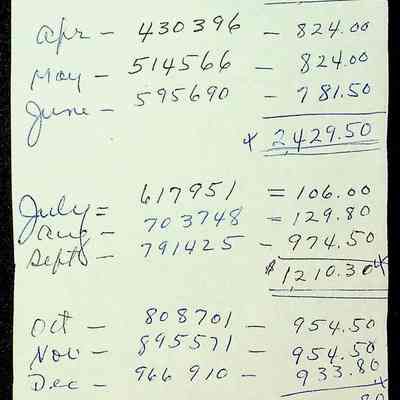 Apr - 430396 - 824.00
May - 514566 - 824.00
June - 595690 - 781.50
* 2,429.50
July = 617951 = 106.00
Aug - 703748 = 129.80
Sept - 791425 - 974.50
$1,210.30 *
Oct - 808701 - 954.50
Nov - 895571 - 954.50
Dec - 966910 - 933.80